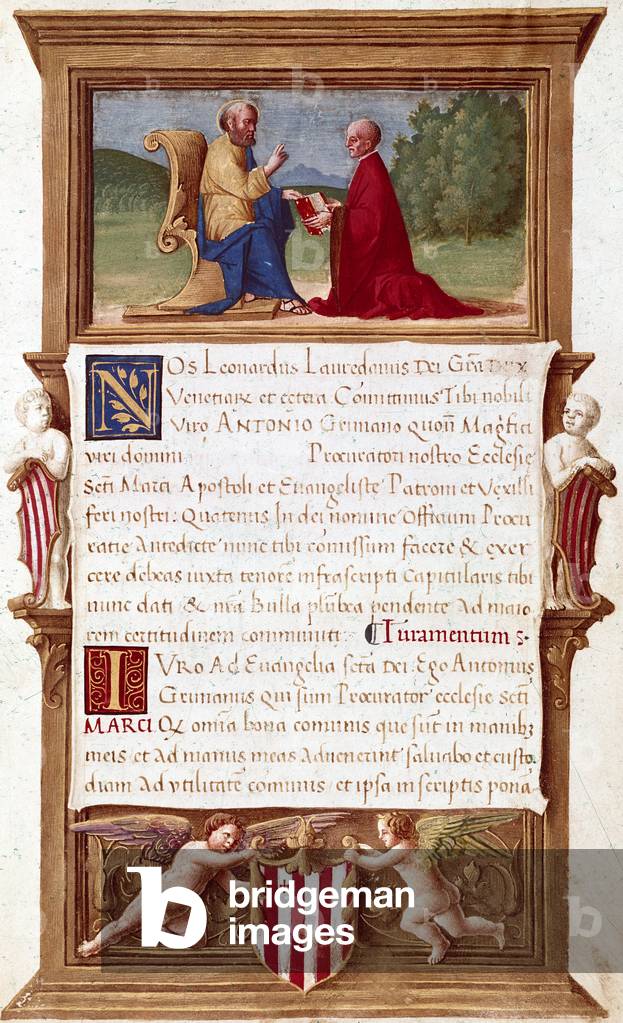 NOS Leonardus Lauredanus Dei Gra Dux
Venetiarꝝ et cetera Comittimus Tibi nobili
Viro ANTONIO Grimano quoñ Mag̃fici
viri domini Procuratori nostro Ecclesie
Scti Marci Apostoli et Euangeliste Patroni et Vexilli
feri nostri: Quatenus In dei nomine Officium Procu
ratie Antedicte nunc tibi comissum facere & exer
cere debeas iuxta tenorẽ infrascripti Capitularis tibi
nunc dati & nr̃a Bulla plũbea pendente Ad maio
rem certitudinem communiti: Iuramentum :
IVRO Ad Euangelia scta Dei Ego Antonius
Grimanus Qui sum Procurator ecclesie Scti
MARCI Qꝫ omĩa bona comunis que sũt in manibꝫ
meis et ad manus meas Aduenerint saluabo et custo
diam Ad vtilitatẽ comunis et ipsa in scriptis ponã
b bridgeman
images